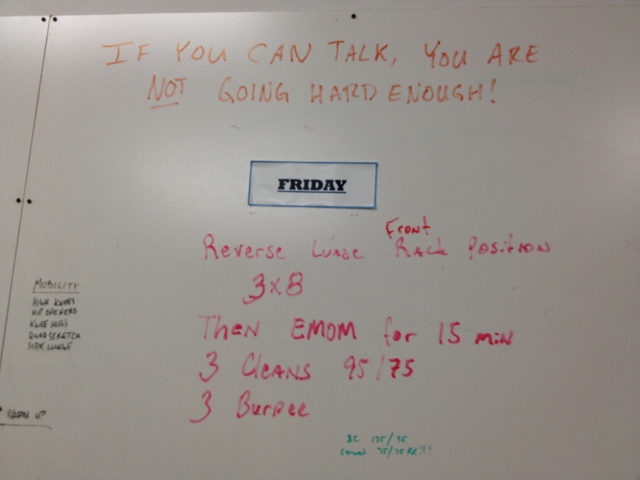 IF YOU CAN TALK, YOU ARE
NOT GOING HARD ENOUGH!
FRIDAY
Front
Reverse Lunge Rack Position
3x8
Then EMOM for 15 min
3 Cleans 95/75
3 Burpee
MOBILITY
HIGH KNEES
HIP OPENERS
KNEE HUGS
QUAD STRETCH
SIDE LUNGE
WARM UP